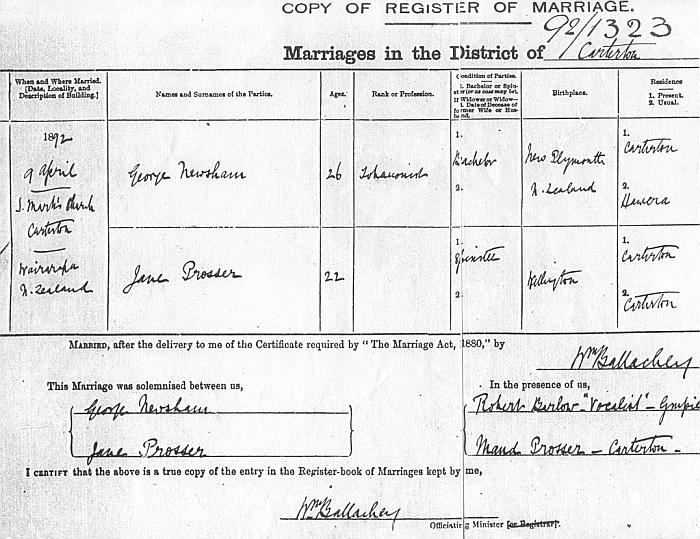 COPY OF REGISTER OF MARRIAGE.
92/1323
Marriages in the District of Carterton
When and Where Married.
[Date, Locality, and
Description of Building.]
Names and Surnames of the Parties.
Ages.
Rank or Profession.
Condition of Parties.
1. Bachelor or Spin-
ster (or as case may be).
If Widower or Widow—
1. Date of Decease of
former Wife or Hus-
band.
Birthplace.
Residence
1. Present.
2. Usual.
1892
9 April
S. Mark's Church
Carterton
Wairarapa
N. Zealand
George Newsham
26
1.
Bachelor
2.
New Plymouth
N. Zealand
1.
Carterton
2.
Hawera
Jane Prosser
22
1.
Spinster
2.
Wellington
1.
Carterton
2.
Carterton
MARRIED, after the delivery to me of the Certificate required by "The Marriage Act, 1880," by
Wm Ballachey
This Marriage was solemnised between us,
George Newsham
Jane Prosser
In the presence of us,
Robert Barlow - "Vocalist" - Gympie
Maud Prosser - Carterton -
I CERTIFY that the above is a true copy of the entry in the Register-book of Marriages kept by me,
Wm Ballachey
Officiating Minister [or Registrar].